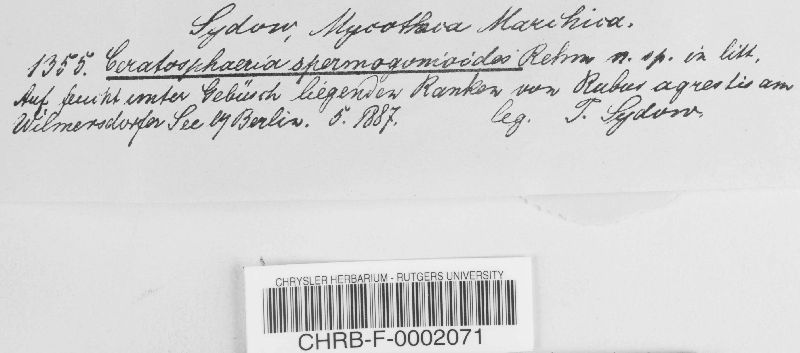 Sydow, Mycotheca Marchica.
1355. Ceratosphaeria spermogonioides Rehm n. sp. in litt.
Auf feucht unter Gebüsch liegenden Ranken von Rubus agrestis am
Wilmersdorfer See by Berlin. 5. 1887. leg. P. Sydow.
CHRYSLER HERBARIUM - RUTGERS UNIVERSITY
CHRB-F-0002071